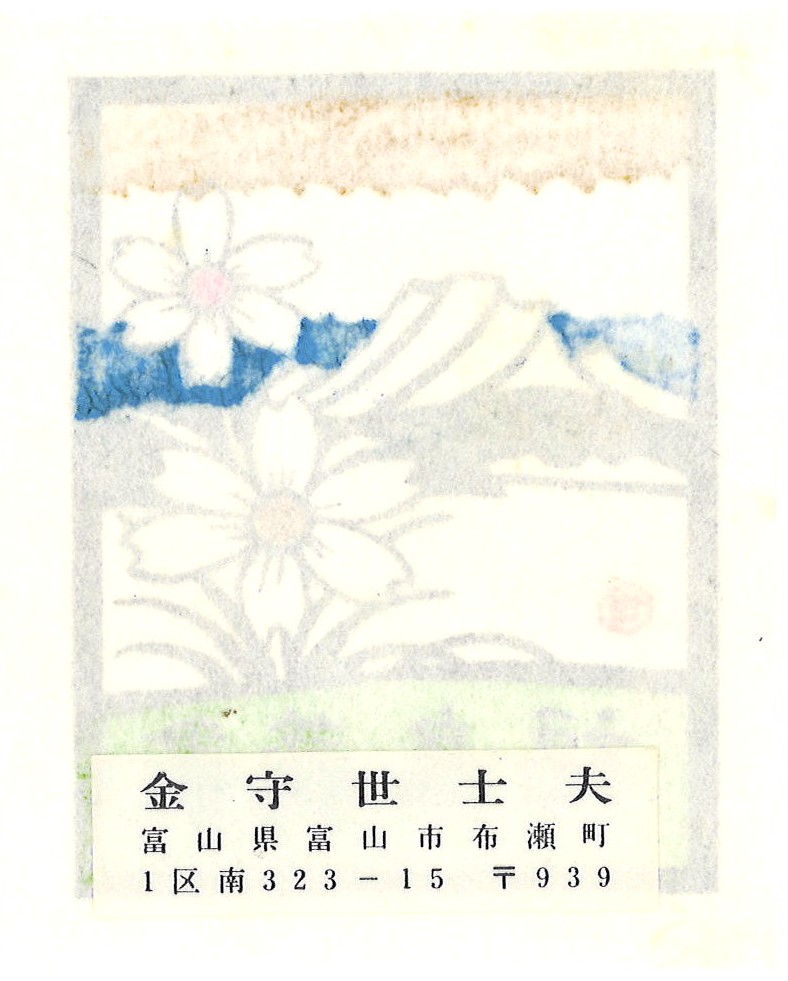 金守世士夫
富山県富山市布瀬町
1区南323-15 〒939